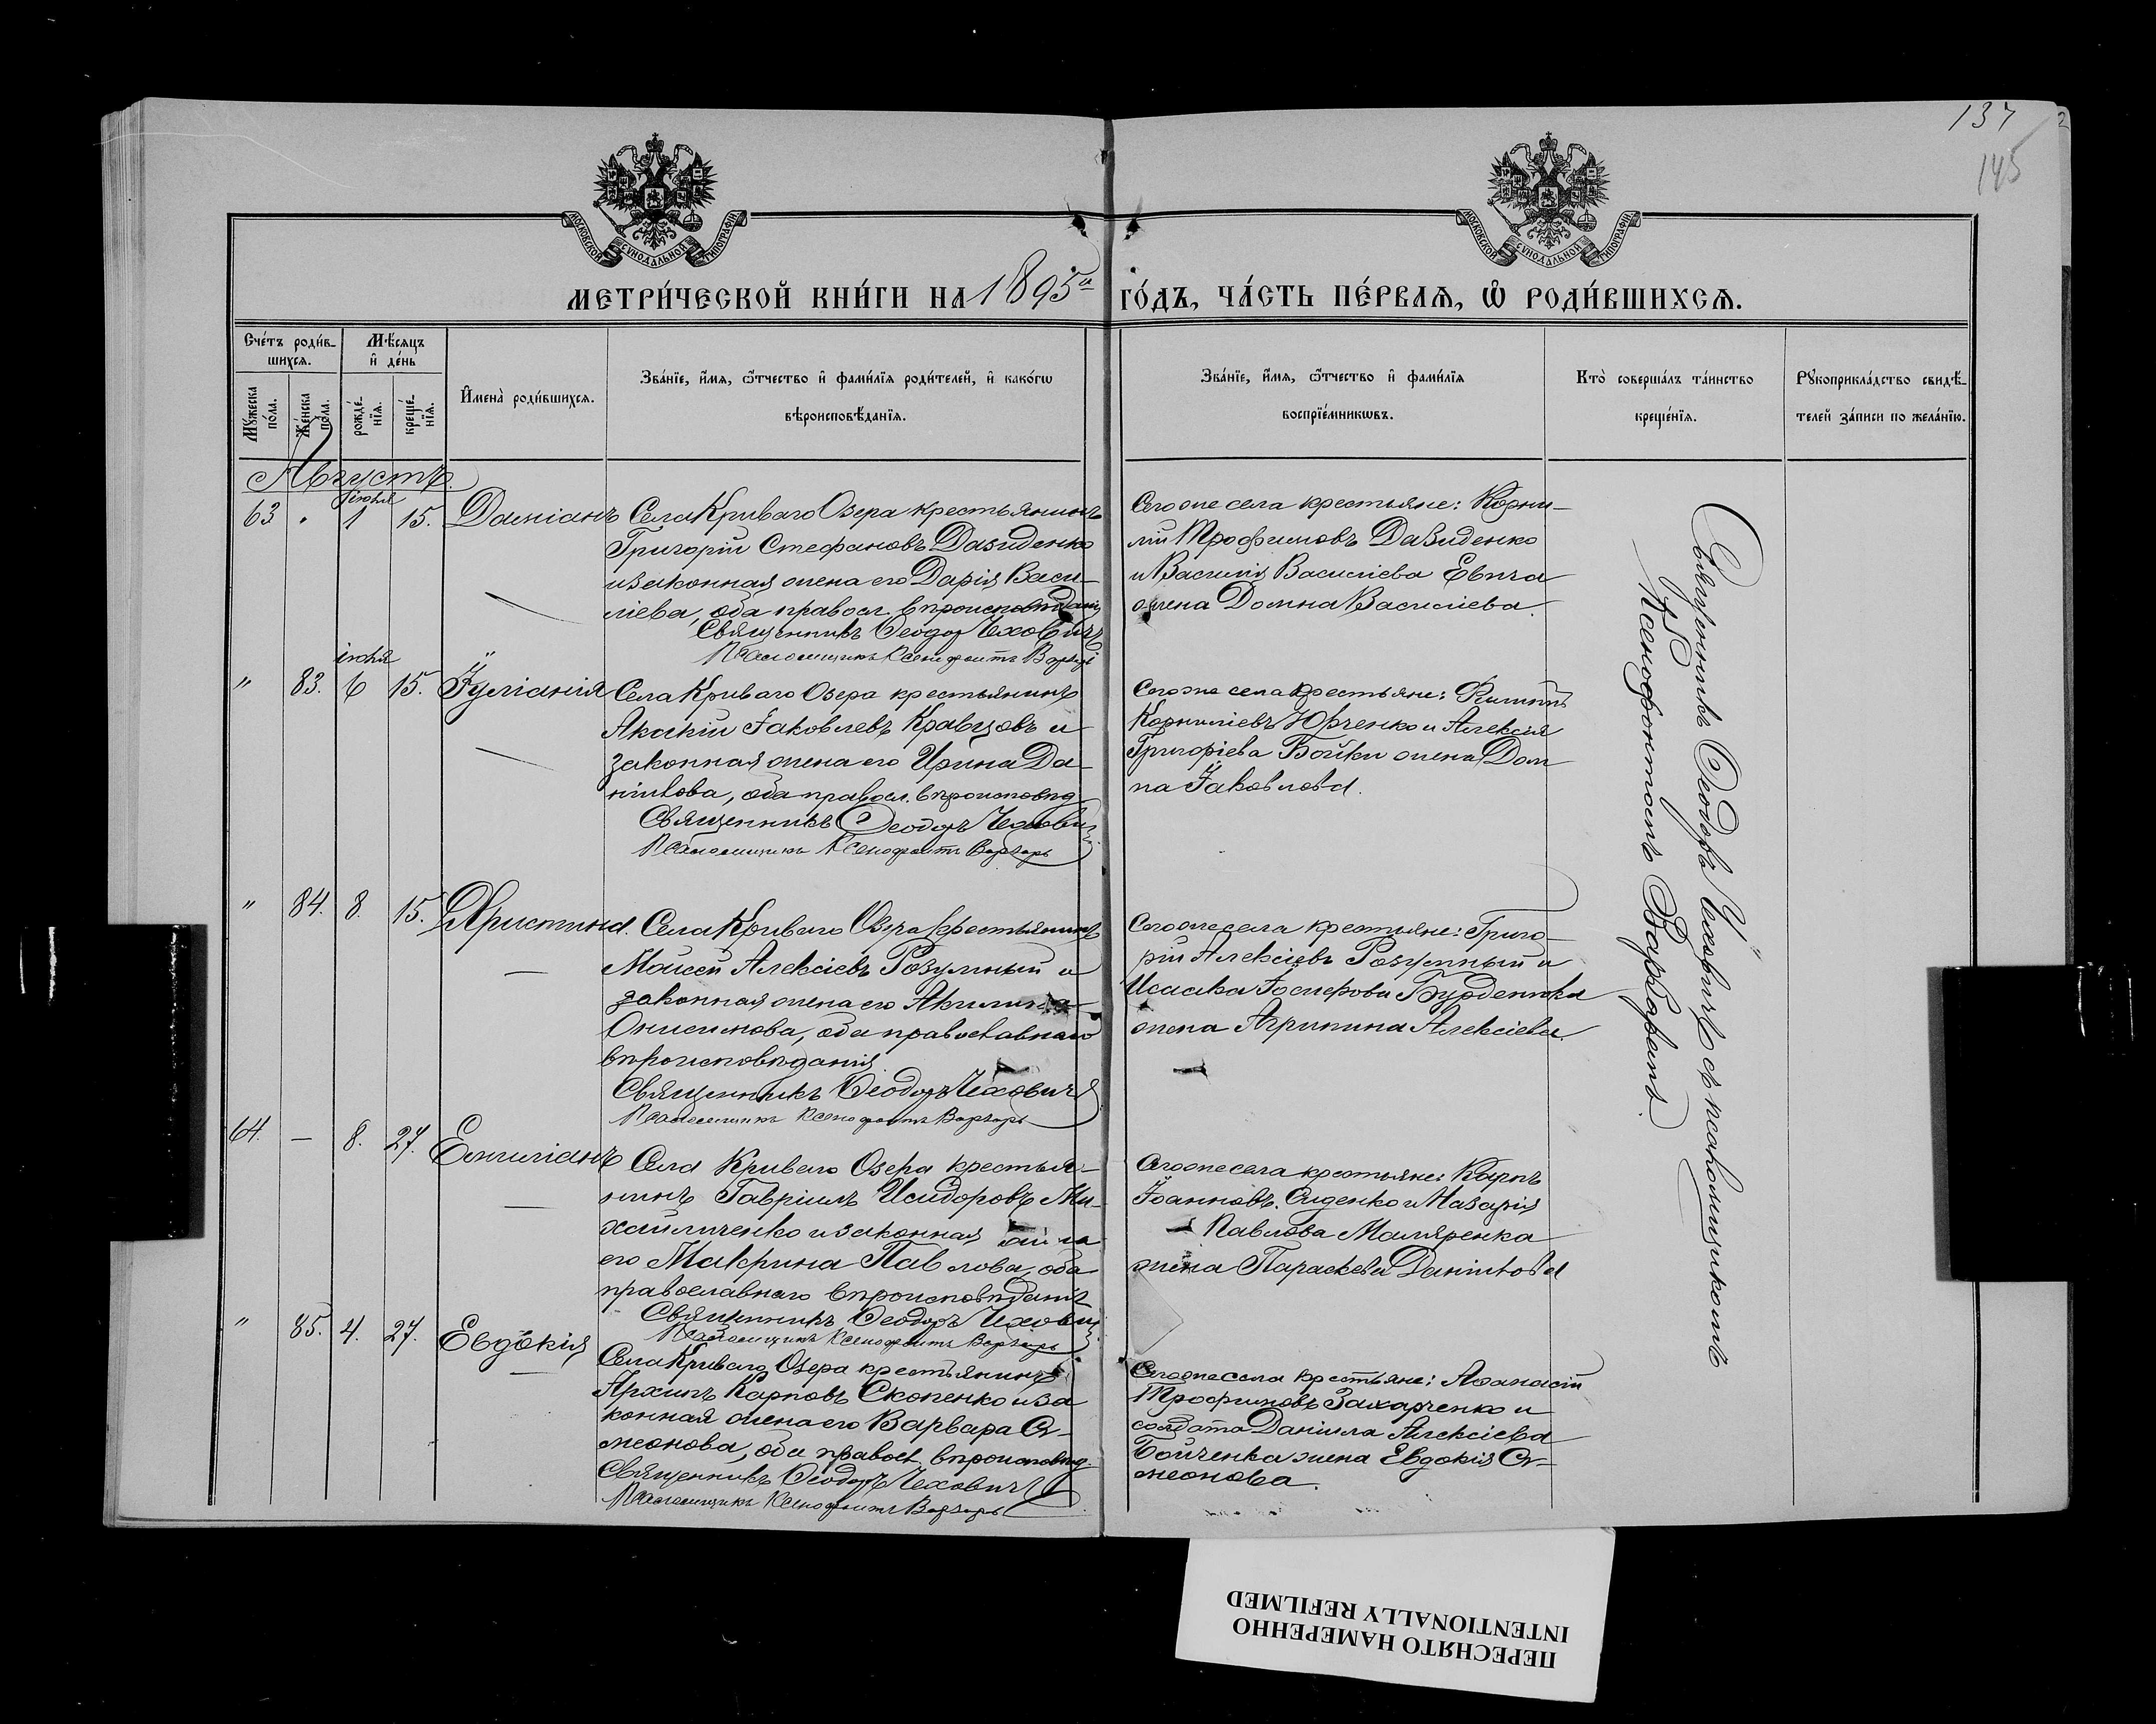 137
145
МОСКОВСКОЙ СѴНОДАЛЬНОЙ ТИПОГРАФІИ
МОСКОВСКОЙ СѴНОДАЛЬНОЙ ТИПОГРАФІИ
МЕТРИ́ЧЕСКОЙ КНИ́ГИ НА 1895й ГО́ДЪ, ЧА́СТЬ ПЕ́РВАѦ, Ѡ҆ РОДИ́ВШИХСѦ.
Сче́тъ роди́в-
шихсѧ.
Мѣ́сѧцъ
и҆ де́нь
Мꙋ́жеска
по́ла.
Же́нска
по́ла.
рожде́-
нїѧ.
креще́-
нїѧ.
И҆мена̀ роди́вшихсѧ.
Зва́нїе, и҆́мѧ, ѻ҆́тчество и҆ фами́лїѧ роди́телей, и҆ како́гѡ
вѣроисповѣ́данїѧ.
Зва́нїе, и҆́мѧ, ѻ҆́тчество и҆ фами́лїѧ
воспрїе́мникѡвъ.
Кто̀ соверша́лъ та́инство
креще́нїѧ.
Рꙋкоприкла́дство свидѣ́-
телей за́писи по жела́нїю.
Августъ.
63 " 1 15. Даміанъ
Села Криваго Озера крестьянинъ
Григорій Стефановъ Давиденко
и законная жена его Дарія Васи-
ліева, оба правосл. вѣроисповѣданія
Священникъ Ѳеодоръ Чеховичъ
Псаломщикъ Ксенофонтъ
Сего же села крестьяне: Корни-
лій Трофимовъ Давиденко
и Василія Василіева
жена Домна Василіева.
" 83. іюля 6 15. Іуліанія
Села Криваго Озера крестьянинъ
Акакій Іаковлевъ Кравцовъ и
законная жена его Ирина Да-
ніилова, оба правосл. вѣроисповѣд.
Священникъ Ѳеодоръ Чеховичъ
Псаломщикъ Ксенофонтъ
Сего же села крестьяне: Филиппъ
Корниліевъ Юрченко и Алексія
Григоріева Бойки жена Дом-
на Іаковлева.
" 84. 8. 15. Христина.
Села Криваго Озера крестьянинъ
Моисей Алексіевъ Розумный и
законная жена его Акилина
Онисимова, оба православнаго
вѣроисповѣданія.
Священникъ Ѳеодоръ Чеховичъ
Псаломщикъ Ксенофонтъ
Сего же села крестьяне: Григо-
рій Алексіевъ Розумный и
Исаака Іосифова Бурденюка
жена Агрипина Алексіева.
64. — 8. 27. Емиліанъ
Села Криваго Озера крестья-
нинъ Гавріилъ Исидоровъ Ми-
хайличенко и законная жена
его Макрина Павлова, оба
православнаго вѣроисповѣданія
Священникъ Ѳеодоръ Чеховичъ
Псаломщикъ Ксенофонтъ
Сего же села крестьяне: Карпъ
Іоанновъ Сиденко и Назарія
Павлова Маляренка
жена Параскева Даніилова
" 85. 4. 27. Евдокія
Села Криваго Озера крестьянинъ
Архипъ Карповъ Скопенко и за-
конная жена его Варвара Си-
меонова, оба правосл. вѣроисповѣд.
Священникъ Ѳеодоръ Чеховичъ
Псаломщикъ Ксенофонтъ
Сего же села крестьяне: Аѳанасій
Трофимовъ Захарченко и
солдата Даніила Алексіева
Бойченка жена Евдокія Си-
меонова.
Священникъ Ѳеодоръ Чеховичъ съ псаломщикомъ
Ксенофонтомъ
ПЕРЕСНЯТО НАМЕРЕННО
INTENTIONALLY REFILMED